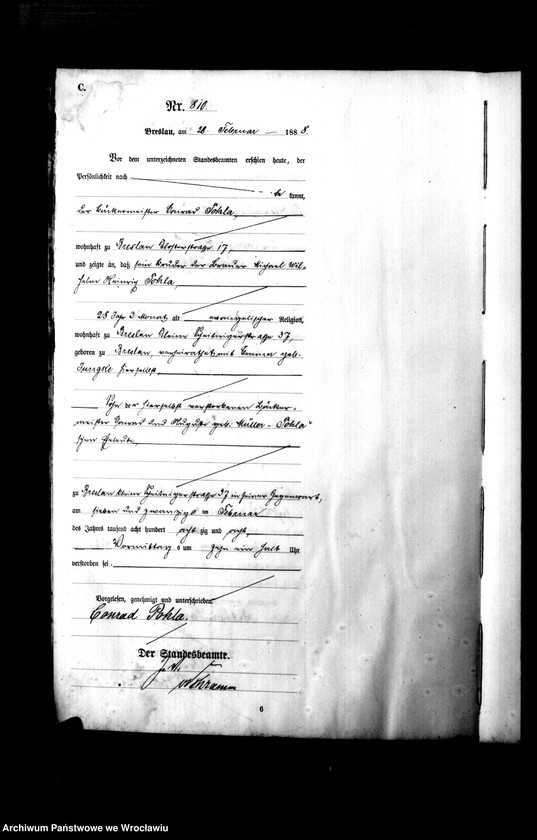 C.
Nr. 810.
Breslau, am 28. Februar 1888.
Vor dem unterzeichneten Standesbeamten erschien heute, der
Persönlichkeit nach
be kannt,
der Bäckermeister Conrad Pohla,
wohnhaft zu Breslau Klosterstraße 17,
und zeigte an, daß sein Bruder der Brauer Michael Wil-
helm Heinrich Pohla,
28 Jahr 3 Monat alt evangelischer Religion,
wohnhaft zu Breslau kleine Scheitnigerstraße 37,
geboren zu Breslau, verheirathet mit Emma geb.
hierselbst,
Sohn der hierselbst verstorbenen Bäcker-
meister Conrad und Auguste geb. Müller-Pohla"
schen Eheleute,
zu Breslau kleine Scheitnigerstraße 37 in seiner Gegenwart,
am sieben und zwanzigsten Februar
des Jahres tausend acht hundert acht zig und acht,
Vormittags um zehn ein halb Uhr
verstorben sei.
Vorgelesen, genehmigt und unterschrieben
Conrad Pohla.
Der Standesbeamte.
6
Archiwum Państwowe we Wrocławiu